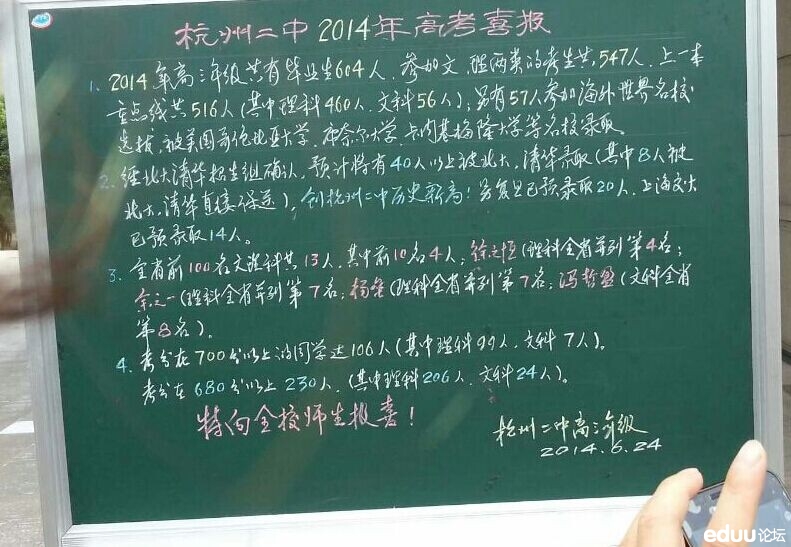 杭州二中2014年高考喜报
1. 2014年高三年级共有毕业生604人,参加文、理两类的考生共547人,上一本
重点线共516人(其中理科460人,文科56人);另有57人参加海外世界名校
选拔,被美国哥伦比亚大学、布奈尔大学、卡内基梅隆大学等名校录取。
2. 经北大清华招生组确认,预计将有40人以上被北大、清华录取(其中8人被
北大、清华直接保送),创杭州二中历史新高!另复旦已预录取20人,上海交大
已预录取14人。
3. 全省前100名文理科共13人,其中前10名4人,徐之恒(理科全省并列第4名;
余之一(理科全省并列第7名;杨 (理科全省并列第7名;冯哲盈(文科全省
第8名)。
4. 考分在700分以上的同学达106人(其中理科99人,文科7人)。
考分在680分以上230人,(其中理科206人,文科24人)。
特向全校师生报喜!
杭州二中高三年级
2014.6.24
eduu论坛